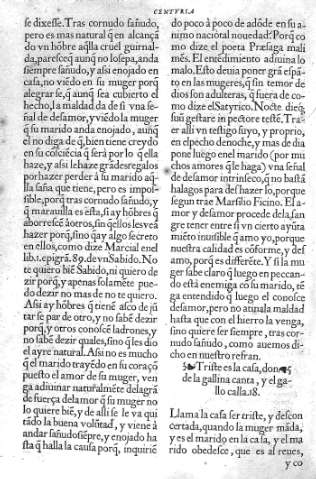 CENTVRIA
se dixesse. Tras cornudo sañudo,
pero es mas natural q̃ en alcançã
do vn hõbre aq̃lla cruel guirnal-
da, parescẽq̃ aunq̃ no lo sepa, anda
siempre sañudo, y assi enojado en
casa, no viẽdo en su muger porq̃
alegrarse, q̃ aunq̃ sea cubierto el
hecho, la maldad da de si vna se-
ñal de desamor, y viẽdo la muger
q̃ su marido anda enojado, aunq̃
el no diga de q̃, bien tiene creydo
en su cõlciẽcia q̃ serà por lo q̃lla
haze, y assi lehaze grãdes regalos
por hazer perder à su marido aq̃-
lla saña que tiene, pero es impos-
sible, porq̃ tras cornudo sañudo, y
q̃ marauilla es esta, si ay hõbres q̃
aborrescẽ à otros, sin q̃llos les veã
hazer porq̃, sino q̃ ay algo secreto
en ellos, como dize Marcial enel
lib. 1. epigrã. 89. de vn Sabido. No
te quiero biẽ Sabido, ni quiero de
zir porq̃, y apenas solamẽte pue-
do dezir no mas de no te quiero.
Assi ay hõbres q̃ tienẽ asco de jũ
tarse par de otro, y no sabẽ dezir
porq̃, y otros conoscẽ ladrones, y
no sabẽ dezir quales, sino q̃ les dio
el ayre natural. Assi no es mucho
q̃ el marido trayẽdo en su coraçõ
puesto el amor de su muger, ven
ga adiuinar naturalmẽte delagrã
de fuerça del amor q̃ su muger no
lo quiere biẽ, y de alli se le va qui
tãdo la buena volũtad, y viene à
andar sañudo siẽpre, y enojado ha
sta q̃ halla la causa porq̃, inquiriẽ
do poco à poco de adõde en su a-
nimo nacio tal nouedad. Porq̃ co
mo dize el poeta Præsaga mali
mẽs. El enẽdimiento adiuina lo
malo. Esto deuia poner grã espã-
to en las mugeres, q̃ sin temor de
dios son adulteras, q̃ fuera de co-
mo dize el Satyrico. Nocte dieq̃,
suũ gestare in pectore testẽ. Tra-
er alli vn testigo suyo, y proprio,
en el pecho de noche, y mas de dia
pone luego enel marido (por mu
chos amores q̃ le haga) vna señal
de desamor intrinseco, q̃ no bastã
halagos para deshazer lo, porque
segun trae Marsilio Ficino. El a-
mor y desamor procede dela san-
gre tener entre si vn cierto ayuta
mẽto inuisible q̃ amo yo, porque
nuestra calidad es cõforme, y des
amo, porq̃ es differẽte. Y si la mu
ger sabe claro q̃ luego en peccan-
do está enemiga cõ su marido, tẽ
ga entendido q̃ luego el conosce
desamor, pero no atapala maldad
hasta que con el hierro la venga,
sino quiere ser siempre, tras cor-
nudo sañudo, como auemos di-
cho en nuestro refran.
Triste es la casa, donde
de la gallina canta, y el ga-
llo calla. 18.
Llama la casa ser triste, y descon
certada, quando la muger mãda,
y es el marido en la casa, y el ma
rido obedesce, que es al reues,
y co